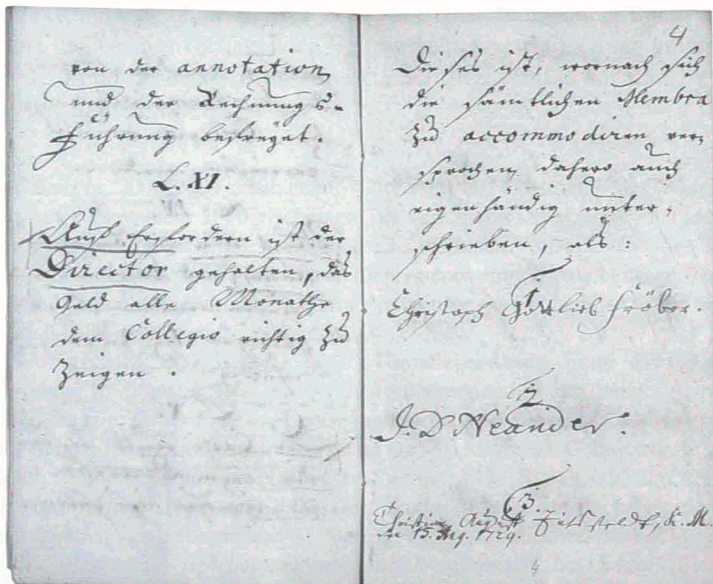 von der annotation
und der Rechnungs-
Führung befreyet.
L. XI.
Auf Erfordern ist der
Director gehalten, das
Geld alle Monathe
dem Collegio richtig zu
zeigen.
4
Dieses ist, wornach sich
die sämtlichen Membra
zu accommodiren ver-
sprochen, dahero auch
eigenhändig unter-
schrieben, als:
1.
Christoph Gottlieb Fröber.
2.
J. D. Neander.
3.
Christian August
den 15. Aug. 1729.
4